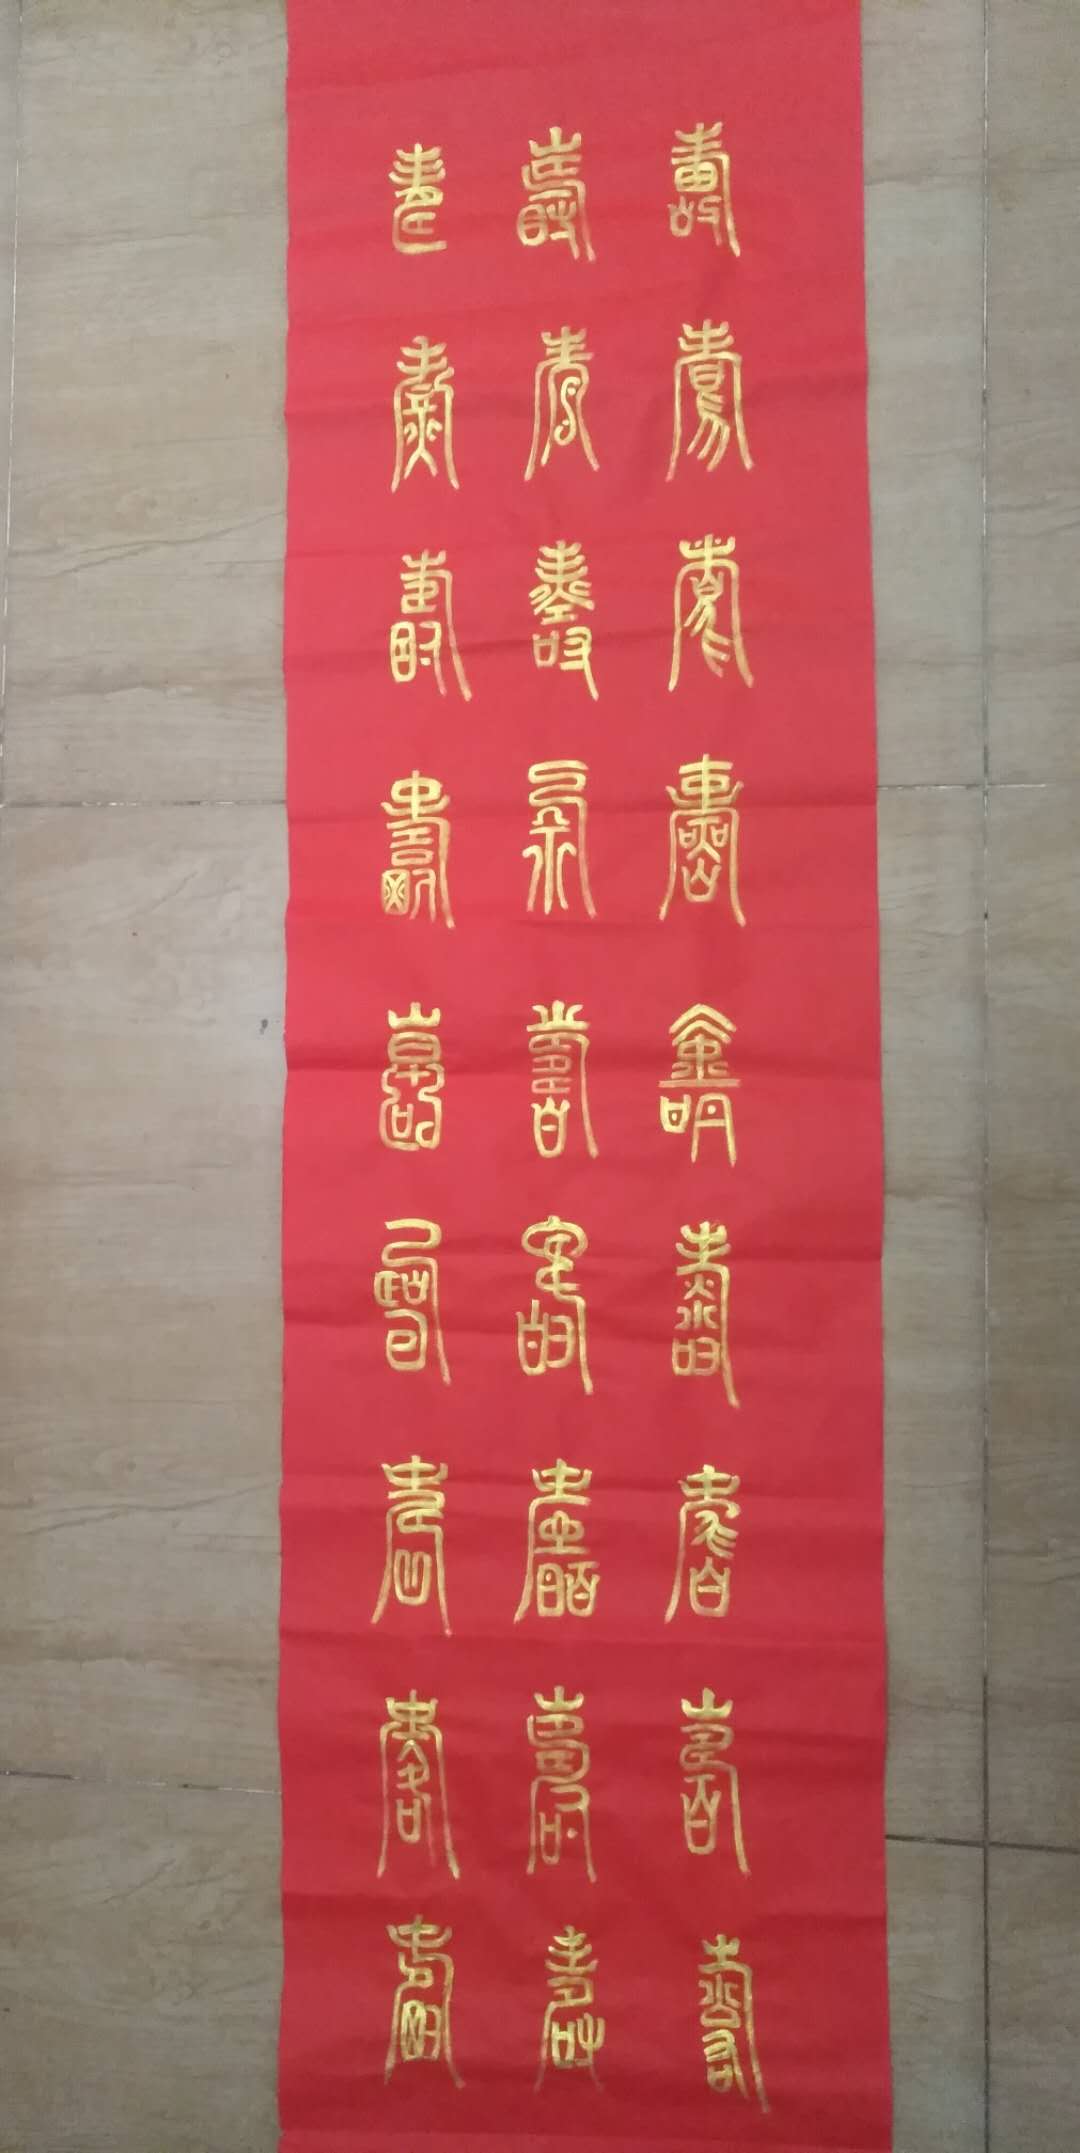 壽壽壽壽壽壽壽壽壽
壽壽壽壽壽壽壽壽壽
壽壽壽壽壽壽壽壽壽